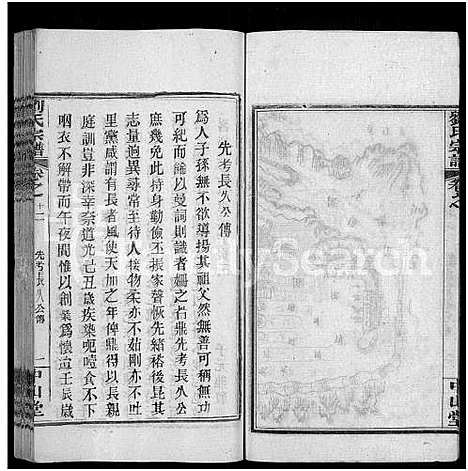 劉氏宗譜
卷之
先考長久公傳
為人子孫無不欲導揚其祖父然無善可稱無功
可紀而僅以曼詞則識者嗤之若鼎先考長久公
庶幾免此持身勤儉振家聲恢先緒裕後昆其
志量過人至於待人接物柔亦不茹剛亦不吐鄰
里黨咸謂有長者風使天加之年俾鼎得以長親
庭訓豈非深幸奈道光己丑歲疾染呃噎食不下
咽衣不解帶而午夜間惟以創業為懷壹壬辰歲
劉氏宗譜
卷之十二
先考長久公傳
一
中山堂
中山堂
FamilySearch